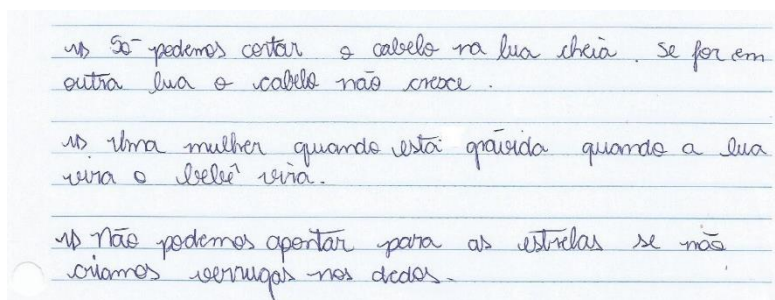 ⇒ Só podemos cortar o cabelo na lua cheia. Se for em
outra lua o cabelo não cresce.
⇒ Uma mulher quando está grávida quando a lua
vira o bebê vira.
⇒ Não podemos apontar para as estrelas se não
criamos verrugas nos dedos.